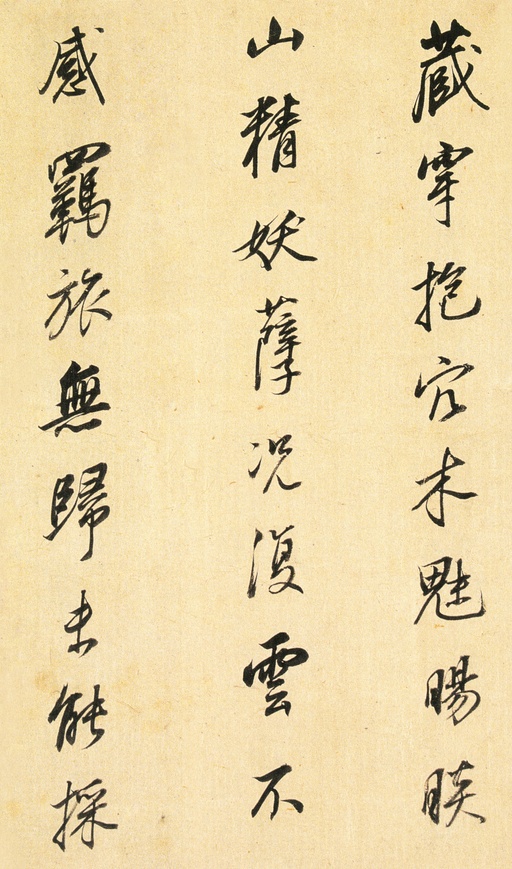 藏穿抱穴木魅睗睒
山精妖孽況復雲不
感羈旅無歸未能採